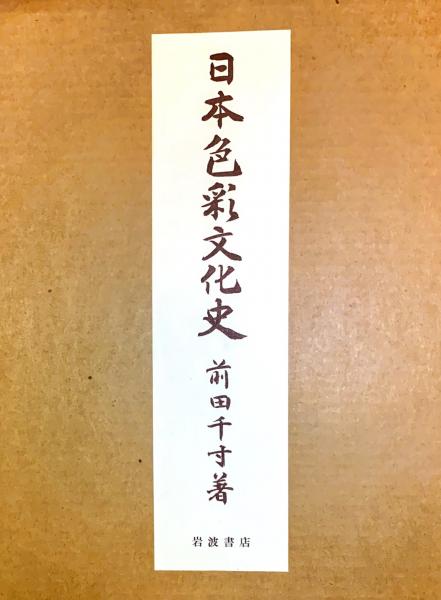 日本色彩文化史
前田千寸著
岩波書店